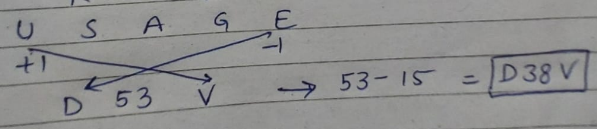 U S A G E
+1 -1
D 53 V → 53-15 = D38V